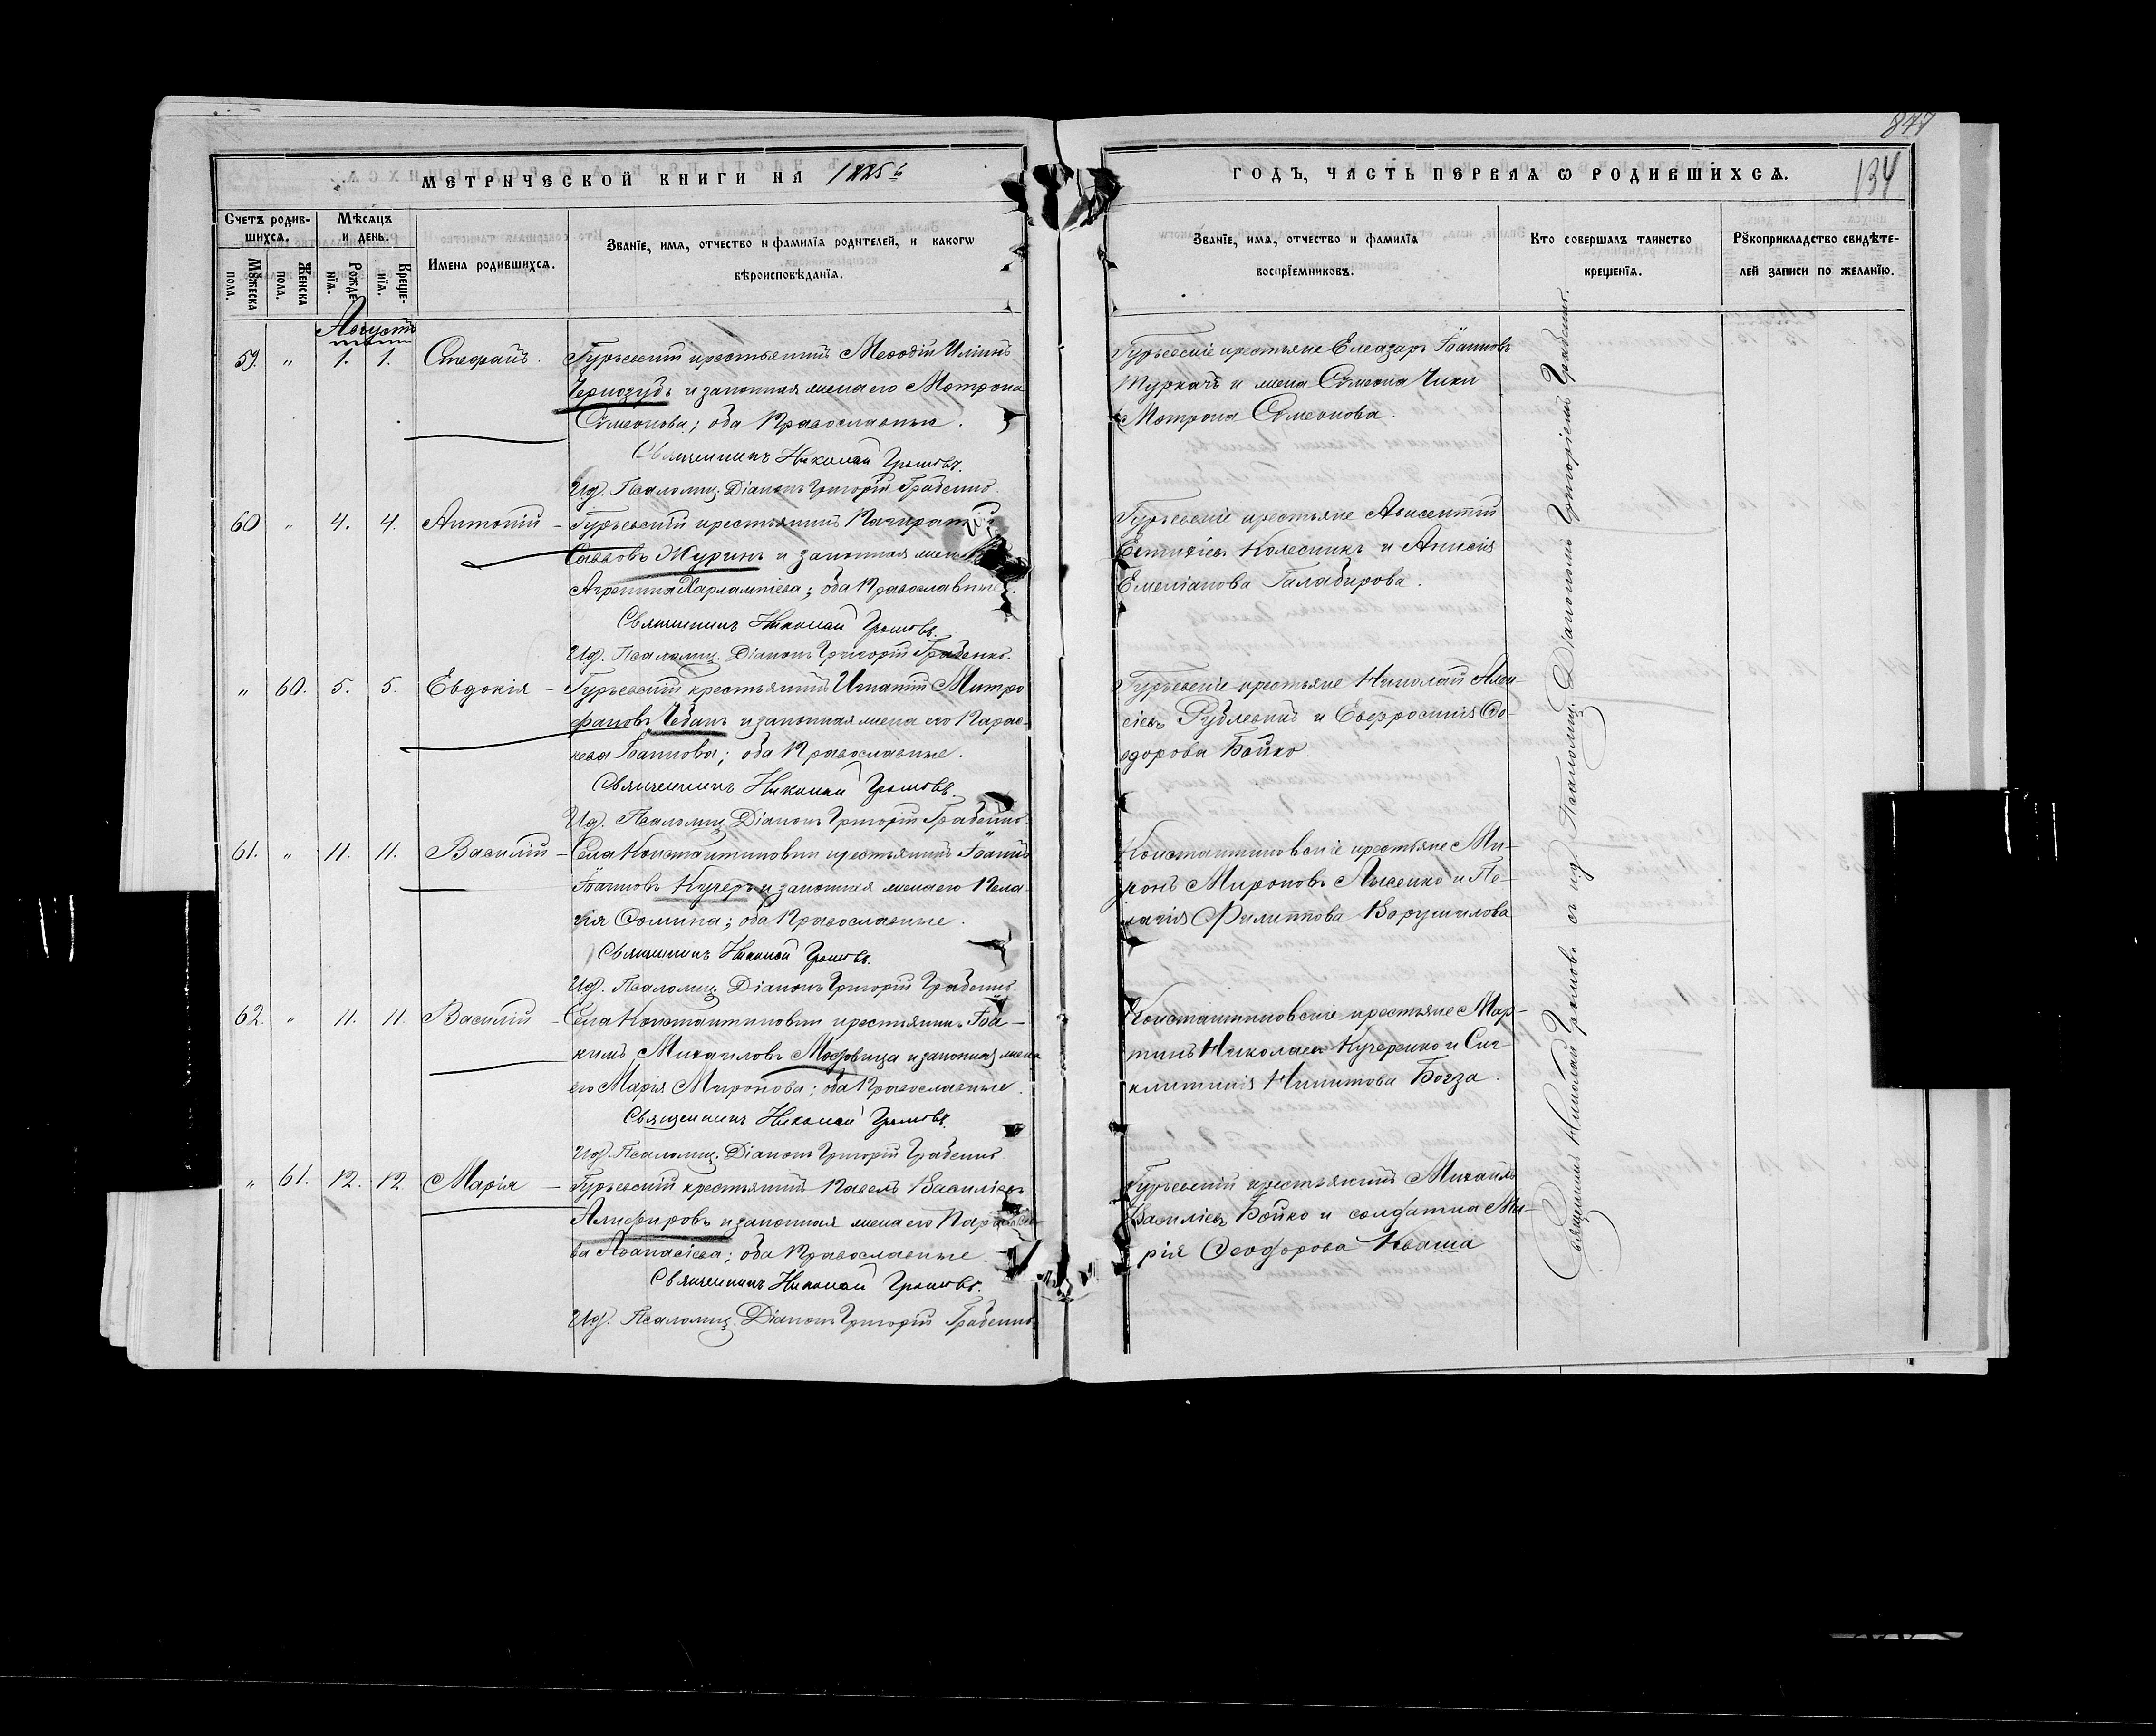 847
134
МЕТРИЧЕСКОЙ КНИГИ НА 1885й
ГОДЪ, ЧАСТЬ ПЕРВАЯ Ѡ РОДИВШИХСЯ.
Счетъ родившихся.
Мѣсяцъ и день.
Имена родившихся.
Званіе, имя, отчество и фамилія родителей, и какогѡ
вѣроисповѣданія.
Мꙋжеска пола.
Женска пола.
Рожденія.
Крещенія.
Званіе, имя, отчество и фамилія
воспріемниковъ.
Кто совершалъ таинство
крещенія.
Рꙋкоприкладство свидѣте-
лей записи по желанію.
Августъ
59. " 1. 1. Стефанъ. Гурьевскій крестьянинъ Меѳодій Иліинъ
Чернозубъ и законная жена его Мотрона
Сѵмеонова; оба Православные.
Священникъ Николай Громовъ.
Ид. Псаломщ. Діаконъ Григорій Грабенко.
Гурьевскіе крестьяне Елеазаръ Іоанновъ
Туркачъ и жена Сѵмеона Чики
Мотрона Сѵмеонова.
60 " 4. 4. Антоній – Гурьевскій крестьянинъ
Саввовъ Журинъ и законная жена
Агрепина Харлампіева; оба Православные.
Священникъ Николай Громовъ.
Ид. Псаломщ. Діаконъ Григорій Грабенко.
Гурьевскіе крестьяне Авксентій
Колесникъ и Анисія
Емеліанова Галабирова.
" 60. 5. 5. Евдокія – Гурьевскій крестьянинъ Игнатій Митро
фановъ Чебанъ и законная жена его Парас-
кева Іоаннова; оба Православные.
Священникъ Николай Громовъ.
Ид. Псаломщ. Діаконъ Григорій Грабенко.
Гурьевскіе крестьяне Николай Алек
сіевъ Рублевскій и Евфросинія Ѳе-
одорова Бойко.
61. " 11. 11. Василій – Села Константиновки крестьянинъ Іоаннъ
Іоанновъ Кучеръ и законная жена его Пела-
гія Ѳомина; оба Православные.
Священникъ Николай Громовъ.
Ид. Псаломщ. Діаконъ Григорій Грабенко.
Константиновскіе крестьяне Ми-
ронъ Мироновъ Лысенко и Пе-
лагія Филиппова Ворушилова
62. " 11. 11. Василій – Села Константиновки крестьянинъ Іоа-
кимъ Михаиловъ Мосовица и законная жена
его Марія Миронова; оба Православные.
Священникъ Николай Громовъ.
Ид. Псаломщ. Діаконъ Григорій Грабенко
Константиновскіе крестьяне Мар-
тинъ Николаевъ Кучеренко и Син-
клитикія Никитова Богза.
" 61. 12. 12. Марія – Гурьевскій крестьянинъ Павелъ Василіевъ
Алифировъ и законная жена его
Аѳанасіева; оба Православные.
Священникъ Николай Громовъ.
Ид. Псаломщ. Діаконъ Григорій Грабенко
Гурьевскій крестьянинъ Михаилъ
Василіевъ Бойко и солдатка Ма-
рія Ѳеодорова Кваша
Священникъ Николай Громовъ съ ид. Псаломщ. Діакономъ Григоріемъ Грабенко.